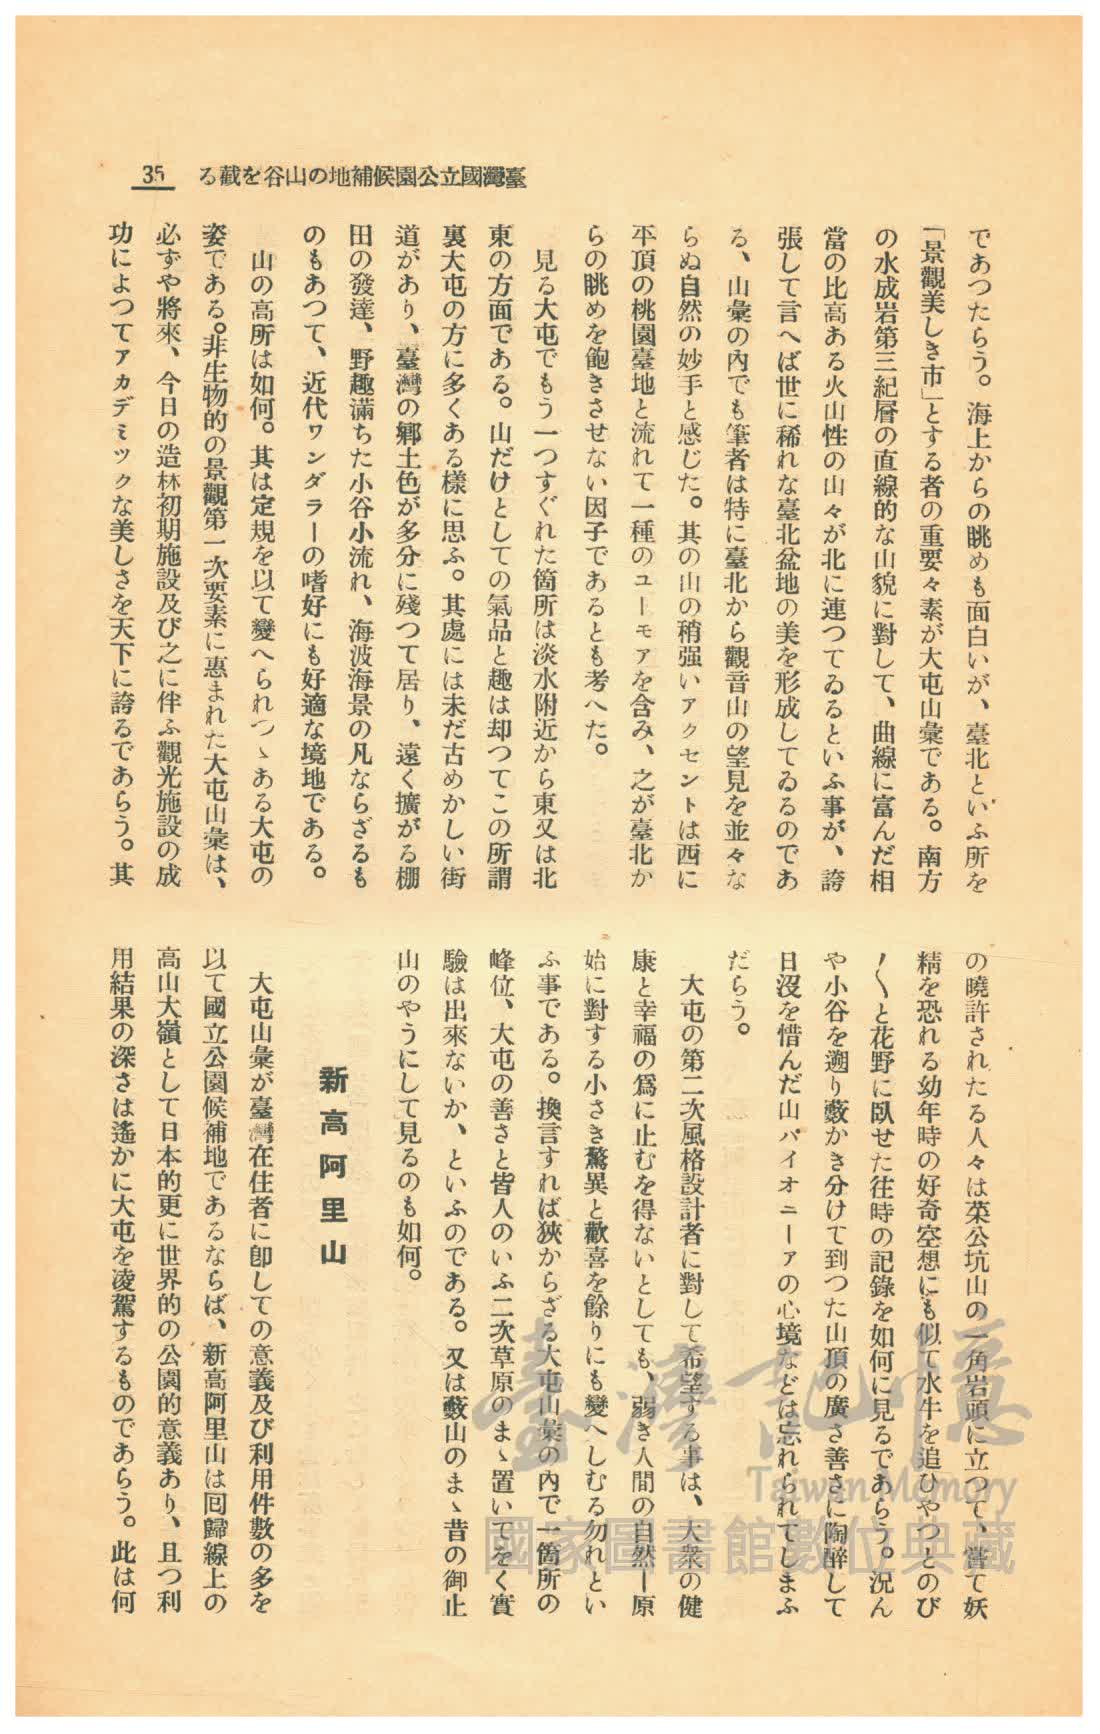 臺灣國立公園候補地の山谷を截る 35
であつたらう。海上からの眺めも面白いが、臺北といふ所を
「景觀美しき市」とする者の重要々素が大屯山彙である。南方
の水成岩第三紀層の直線的な山貌に對して、曲線に富んだ相
當の比高ある火山性の山々が北に連つてゐるといふ事が、誇
張して言へば世に稀れな臺北盆地の美を形成してゐるのであ
る、山彙の內でも筆者は特に臺北から觀音山の望見を並々な
らぬ自然の妙手と感じた。其の山の稍强いアクセントは西に
平頂の桃園臺地と流れて一種のユーモアを含み、之が臺北か
らの眺めを飽きさせない因子であるとも考へた。
見る大屯でもう一つすぐれた箇所は淡水附近から東又は北
東の方面である。山だけとしての氣品と趣は却つてこの所謂
裏大屯の方に多くある樣に思ふ。其處には未だ古めかしい街
道があり、臺灣の鄕土色が多分に殘つて居り、遠く擴がる棚
田の發達、野趣滿ちた小谷小流れ、海波海景の凡ならざるも
のもあつて、近代ワンダラーの嗜好にも好適な境地である。
山の高所は如何。其は定規を以て變へられつゝある大屯の
姿である。非生物的の景觀第一次要素に惠まれた大屯山彙は、
必ずや將來、今日の造林初期施設及び之に伴ふ觀光施設の成
功によつてアカデミックな美しさを天下に誇るであらう。其
の曉許されたる人々は菜公坑山の一角岩頭に立つて、嘗て妖
精を恐れる幼年時の好奇空想にも似て水牛を追ひやつとのび
〳〵と花野に臥せた往時の記錄を如何に見るであらう。況ん
や小谷を遡り藪かき分けて到つた山頂の廣さ善さに陶醉して
日沒を惜んだ山パイオニーアの心境などは忘れられてしまふ
だらう。
大屯の第二次風格設計者に對して希望する事は、大衆の健
康と幸福の爲に止むを得ないとしても、弱き人間の自然ー原
始に對する小さき驚異と歡喜を餘りにも變へしむる勿れとい
ふ事である。換言すれば狹からざる大屯山彙の內で一箇所の
峰位、大屯の善さと皆人のいふ二次草原のまゝ置いてをく實
驗は出來ないか、といふのである。又は藪山のまゝ昔の御止
山のやうにして見るのも如何。
新高阿里山
大屯山彙が臺灣在住者に卽しての意義及び利用件數の多を
以て國立公園候補地であるならば、新高阿里山は囘歸線上の
高山大嶺として日本的更に世界的の公園的意義あり、且つ利
用結果の深さは遙かに大屯を凌駕するものであらう。此は何
臺灣記憶
Taiwan Memory
國家圖書館數位典藏